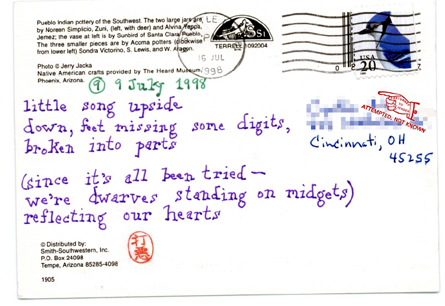 Pueblo Indian pottery of the Southwest. The two large jars are
by Noreen Simplicio, Zuni, (left, with deer) and Alvina Yeppa,
Jemez; the vase at left is by Sunbird of Santa Clara Pueblo.
The three smaller pieces are by Acoma potters (clockwise
from lower left) Sondra Victorino, S. Lewis, and W. Aragon.
Photo © Jerry Jacka
Native American crafts provided by The Heard Museum,
Phoenix, Arizona.
16 JUL
1998
USA
20
⑨ 9 July 1998
little song upside
down, feet missing some digits,
broken into parts
(since it's all been tried —
we're dwarves standing on midgets)
reflecting our hearts
ATTEMPTED, NOT KNOWN
Cincinnati, OH
45255
© Distributed by:
Smith-Southwestern, Inc.
P.O. Box 24098
Tempe, Arizona 85285-4098
1905